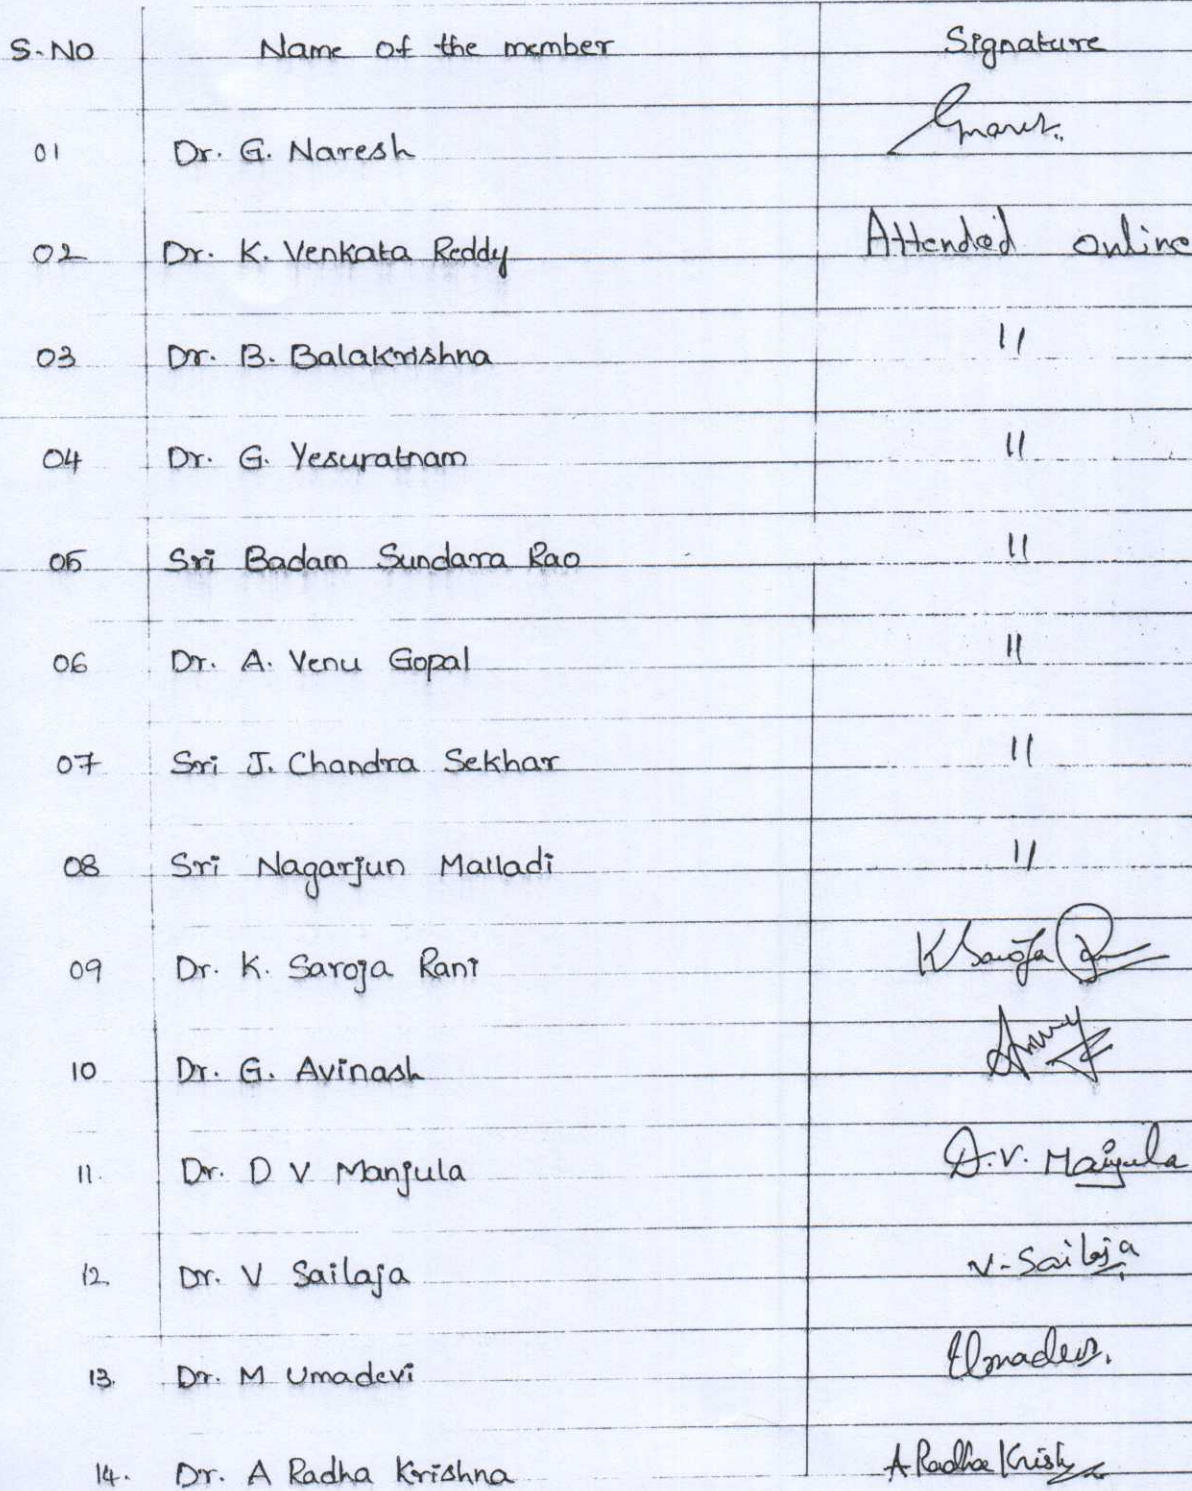 S.No Name of the member Signature
01 Dr. G. Naresh
02 Dr. K. Venkata Reddy Attended online
03 Dr. B. Balakrishna 11
04 Dr. G. Yesuratnam 11
05 Sri Badam Sundara Rao 11
06 Dr. A. Venu Gopal 11
07 Sri J. Chandra Sekhar 11
08 Sri Nagarjun Malladi 11
09 Dr. K. Saroja Rani K Saroja
10 Dr. G. Avinash
11. Dr. D V Manjula D.V. Manjula
12. Dr. V Sailaja V. Sailaja
13. Dr. M Umadevi Umadevi.
14. Dr. A Radha Krishna A Radha Krish